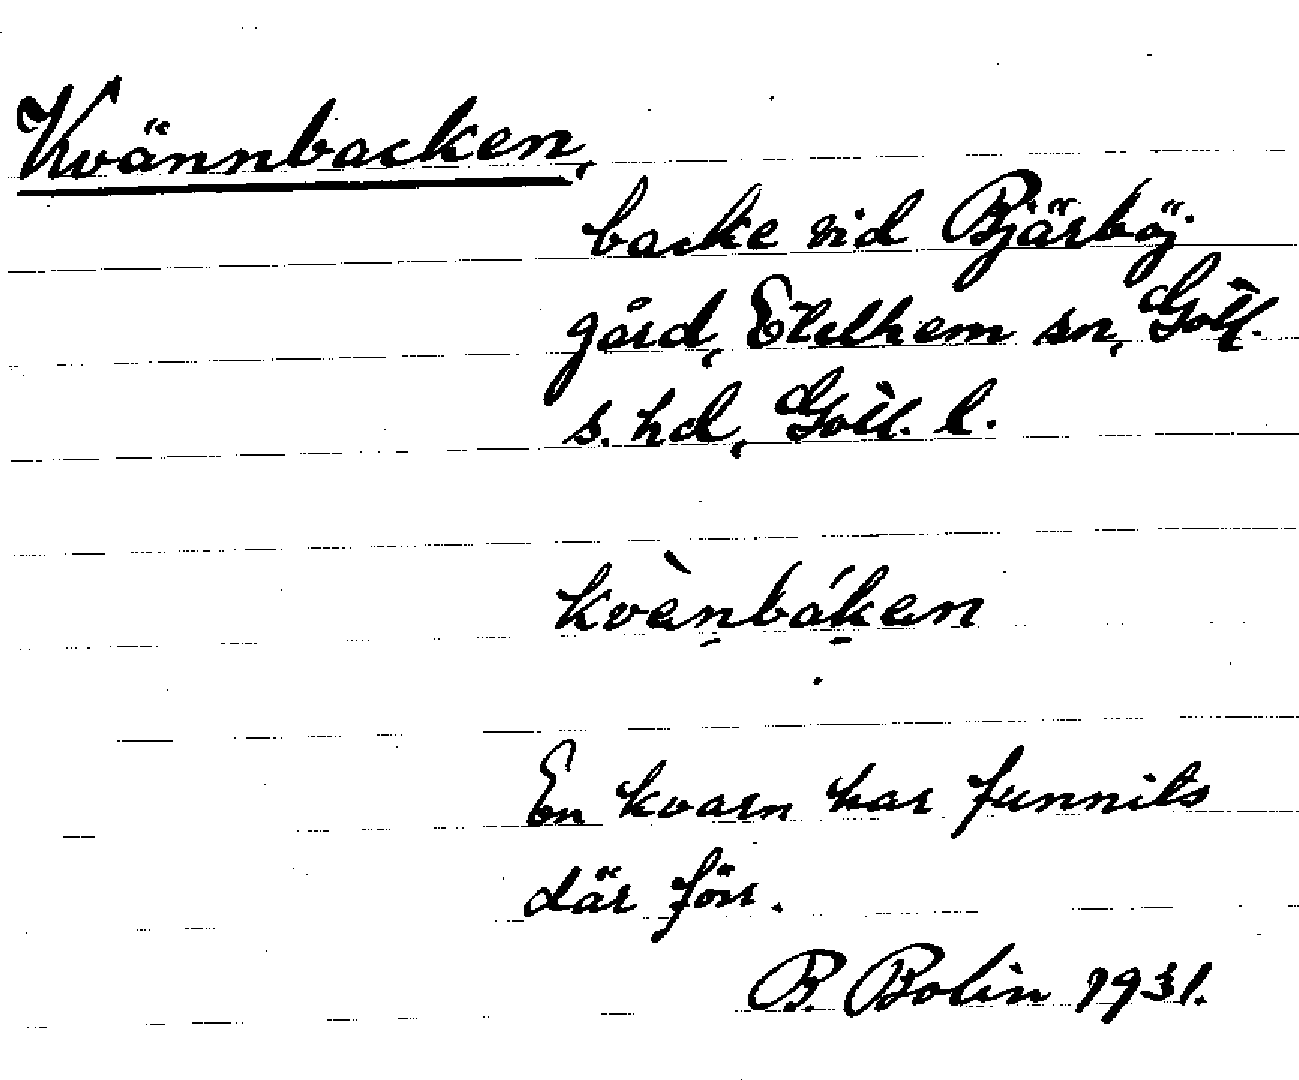 Kvännbacken,
backe vid Bjärböj
gård, Etelhem sn, Gotl.
s. hd, Gotl. l.
kvὲnbák̲an
En kvarn har funnits
där förr.
B. Bolin 1931.